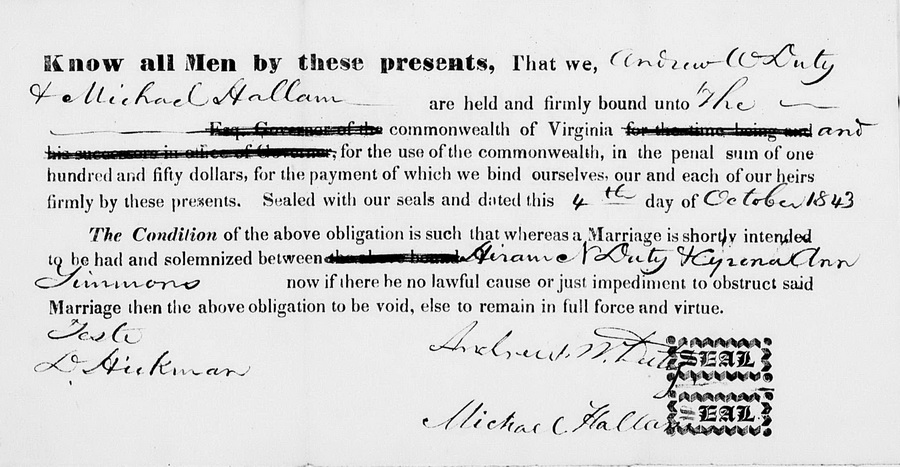 Know all Men by these presents, That we, Andrew W Duty
& Michael Hallam are held and firmly bound unto The
Esq. Governor of the commonwealth of Virginia for the time being and and
his successors in office of Governor, for the use of the commonwealth, in the penal sum of one
hundred and fifty dollars, for the payment of which we bind ourselves, our and each of our heirs
firmly by these presents. Sealed with our seals and dated this 4th day of October 1843
The Condition of the above obligation is such that whereas a Marriage is shortly intended
to be had and solemnized between the above bound Hiram N Duty & Ann
Simmons now if there be no lawful cause or just impediment to obstruct said
Marriage then the above obligation to be void, else to remain in full force and virtue.
Teste
D. Hickman
Andrew W. Duty SEAL
Michael Hallam SEAL